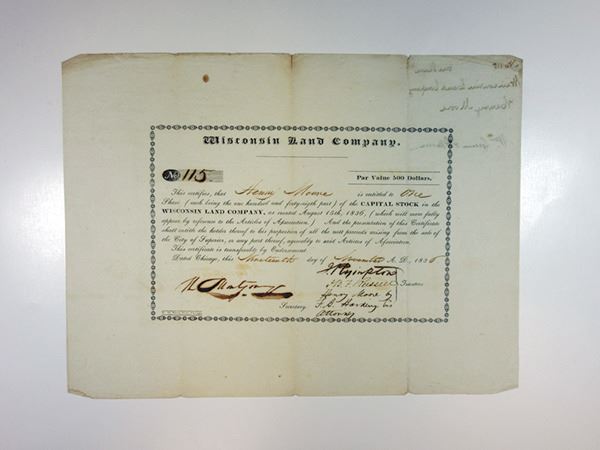 Wisconsin Land Company.
No. 115
Par Value 500 Dollars.
This certifies, that Henry Moore is entitled to One
Share (each being the one hundred and forty-sixth part) of the CAPITAL STOCK in the
WISCONSIN LAND COMPANY, as created August 15th, 1836, (which will more fully
appear by reference to the Articles of Association.) And the presentation of this Certificate
shall entitle the holder thereof to his proportion of all the nett proceeds arising from the sale of
the City of Superior, or any part thereof, agreeably to said Articles of Association.
This certificate is transferable by Endorsement.
Dated Chicago, this day of November A. D., 1836
B. F. Russell Trustees
Henry Moore by
Secretary. F. S. Harding his
Attorney